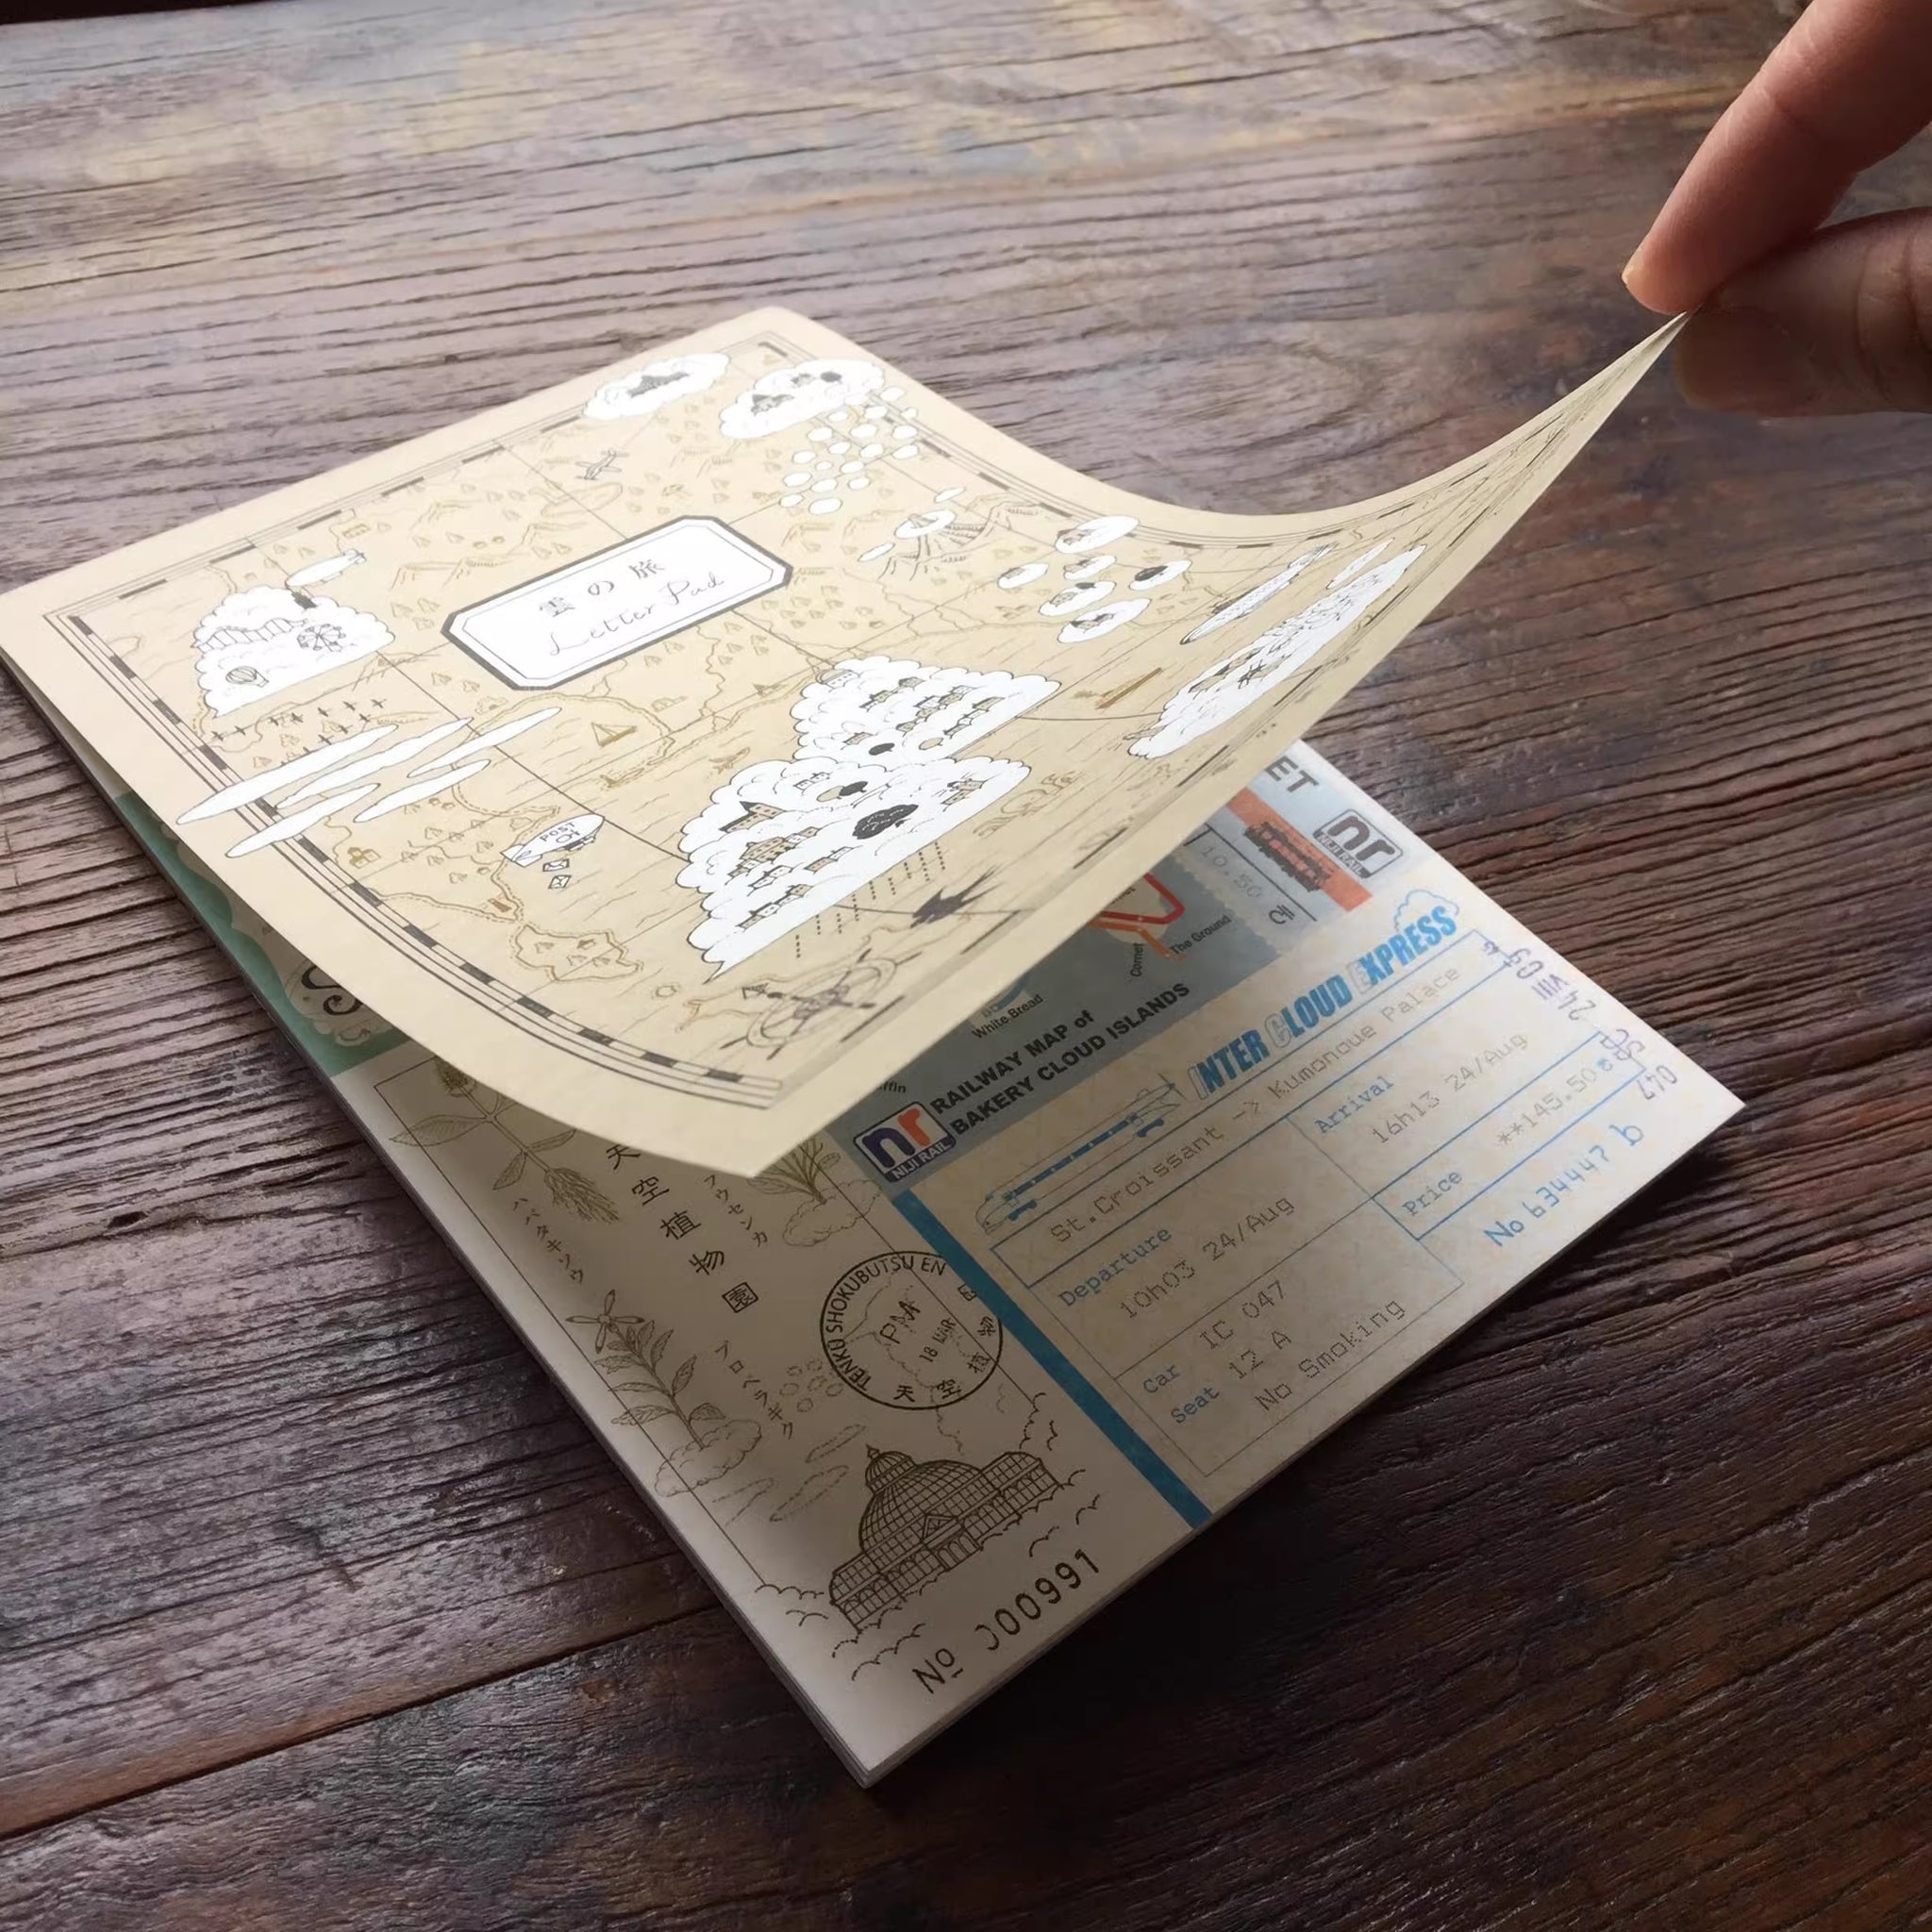 雲の旅
Letter Pad
POST
ET
nr
NIJI RAIL
10.50
Corner
The Ground
White Bread
ffin
nr
NIJI RAIL
RAILWAY MAP of
BAKERY CLOUD ISLANDS
INTER CLOUD EXPRESS
St.Croissant -> Kumonoue Palace
Departure
10h03 24/Aug
Arrival
16h13 24/Aug
Car IC 047
Seat 12 A
No Smoking
Price **145.50
No 634447 b
24 VIII 09
047
天空植物園
ハバタキソウ
フウセンカ
プロペラギク
TENKU SHOKUBUTSU EN
PM
18 MAR
天空植物園
No 000991